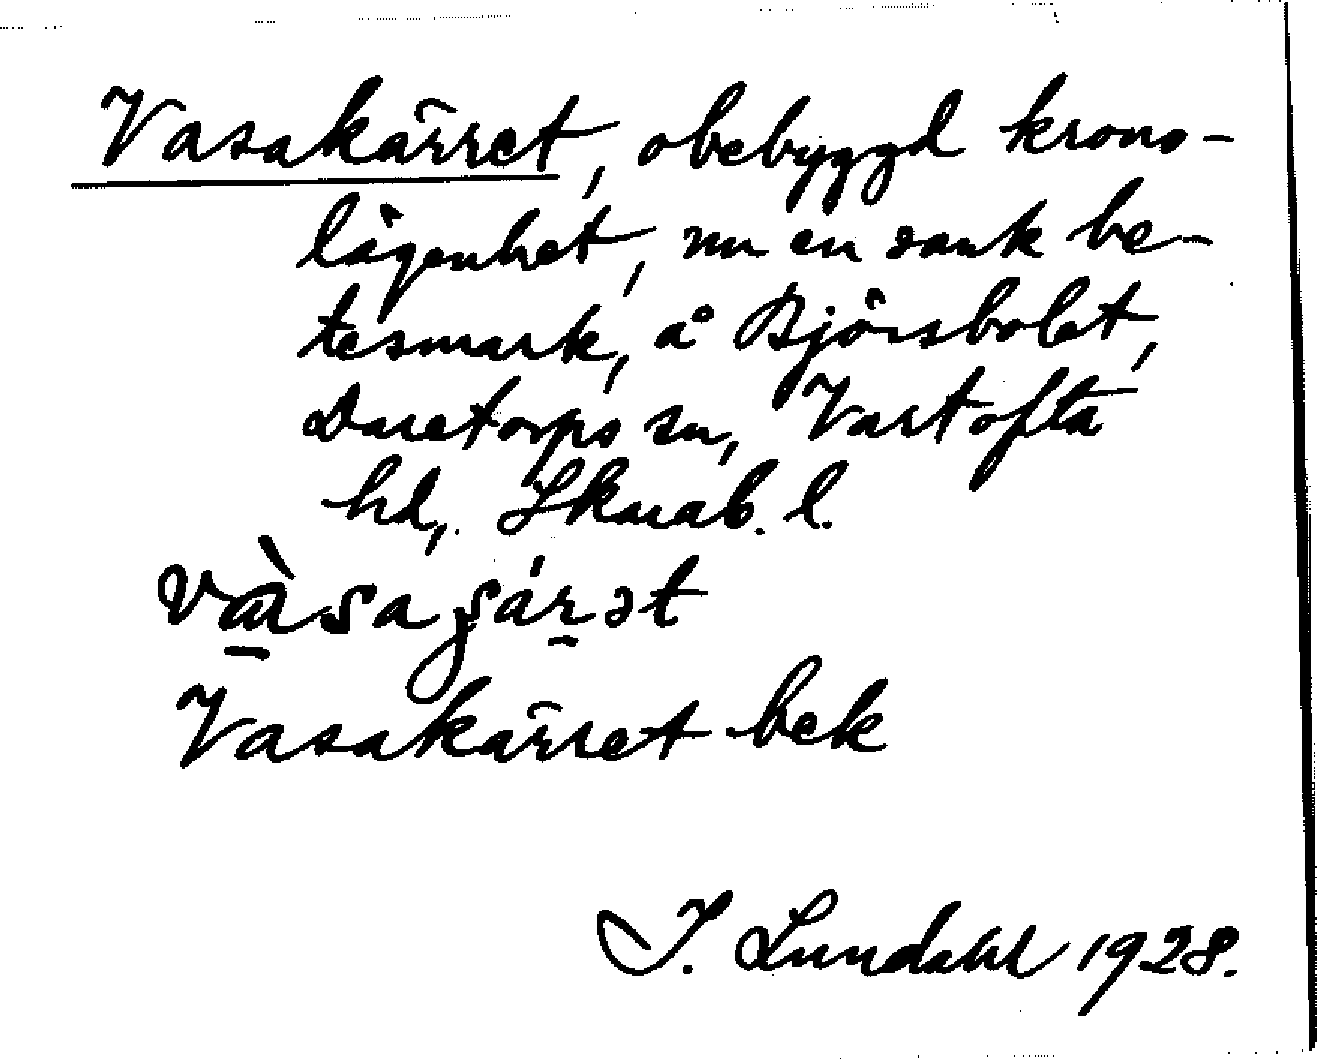 Vasakärret, obebyggd krono-
lägenhet, nu en sank be-
tesmark, å Björsbolet,
Daretorps sn, Vartofta
hd, Skarab. l.
Vasakärret bek
I. Lundahl 1928.